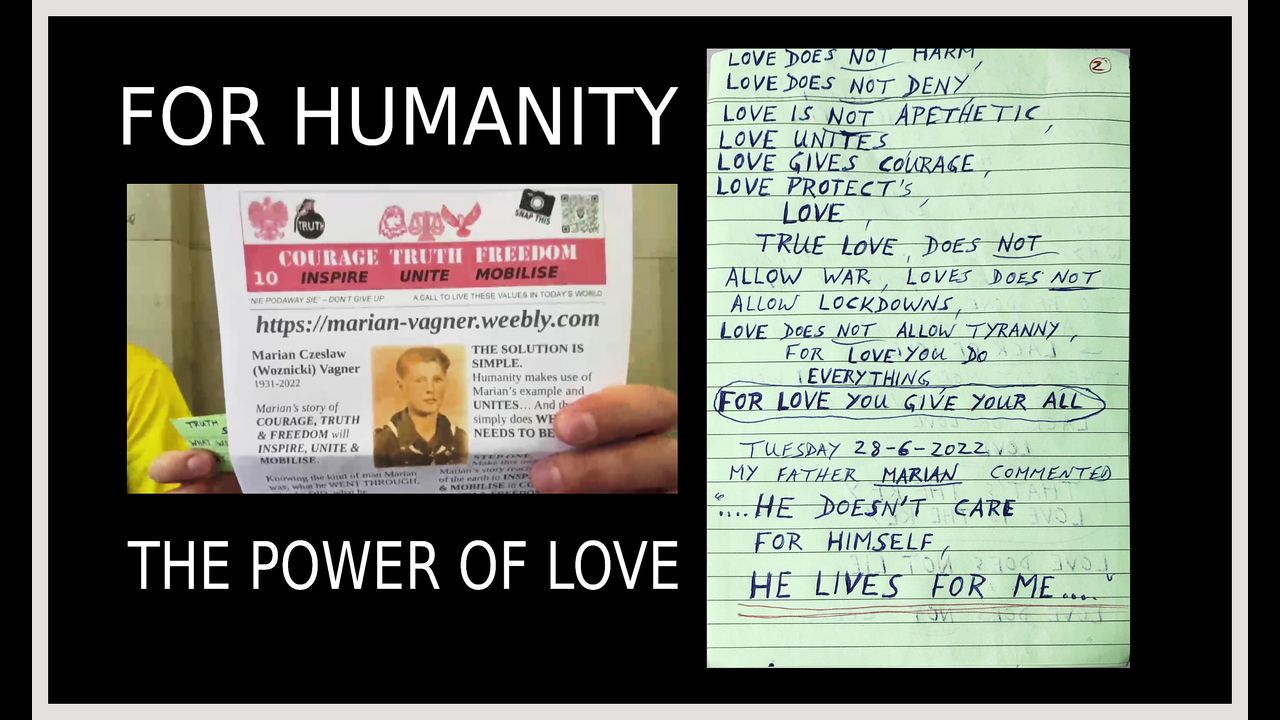 FOR HUMANITY
TRUTH
SNAP THIS
COURAGE TRUTH FREEDOM
10 INSPIRE UNITE MOBILISE
'NIE PODAWAY SIE' – DON'T GIVE UP
A CALL TO LIVE THESE VALUES IN TODAY'S WORLD
https://marian-vagner.weebly.com
Marian Czeslaw
(Woznicki) Vagner
1931-2022
Marian's story of
COURAGE, TRUTH
& FREEDOM will
INSPIRE, UNITE &
MOBILISE.
Knowing the kind of man Marian
was, what he WENT THROUGH,
THE SOLUTION IS
SIMPLE.
Humanity makes use of
Marian's example and
UNITES… And
simply does
NEEDS TO BE
STEP ONE
Make this
Marian's story
of the earth to
& MOBILISE in
TRUTH
WHAT
THE POWER OF LOVE
2
LOVE DOES NOT HARM,
LOVE DOES NOT DENY,
LOVE IS NOT APETHETIC,
LOVE UNITES
LOVE GIVES COURAGE,
LOVE PROTECT'S,
LOVE,
TRUE LOVE, DOES NOT
ALLOW WAR, LOVES DOES NOT
ALLOW LOCKDOWNS,
LOVE DOES NOT ALLOW TYRANNY,
FOR LOVE YOU DO
EVERYTHING,
FOR LOVE YOU GIVE YOUR ALL
TUESDAY 28-6-2022
MY FATHER MARIAN COMMENTED
"....HE DOESN'T CARE
FOR HIMSELF,
HE LIVES FOR ME...."